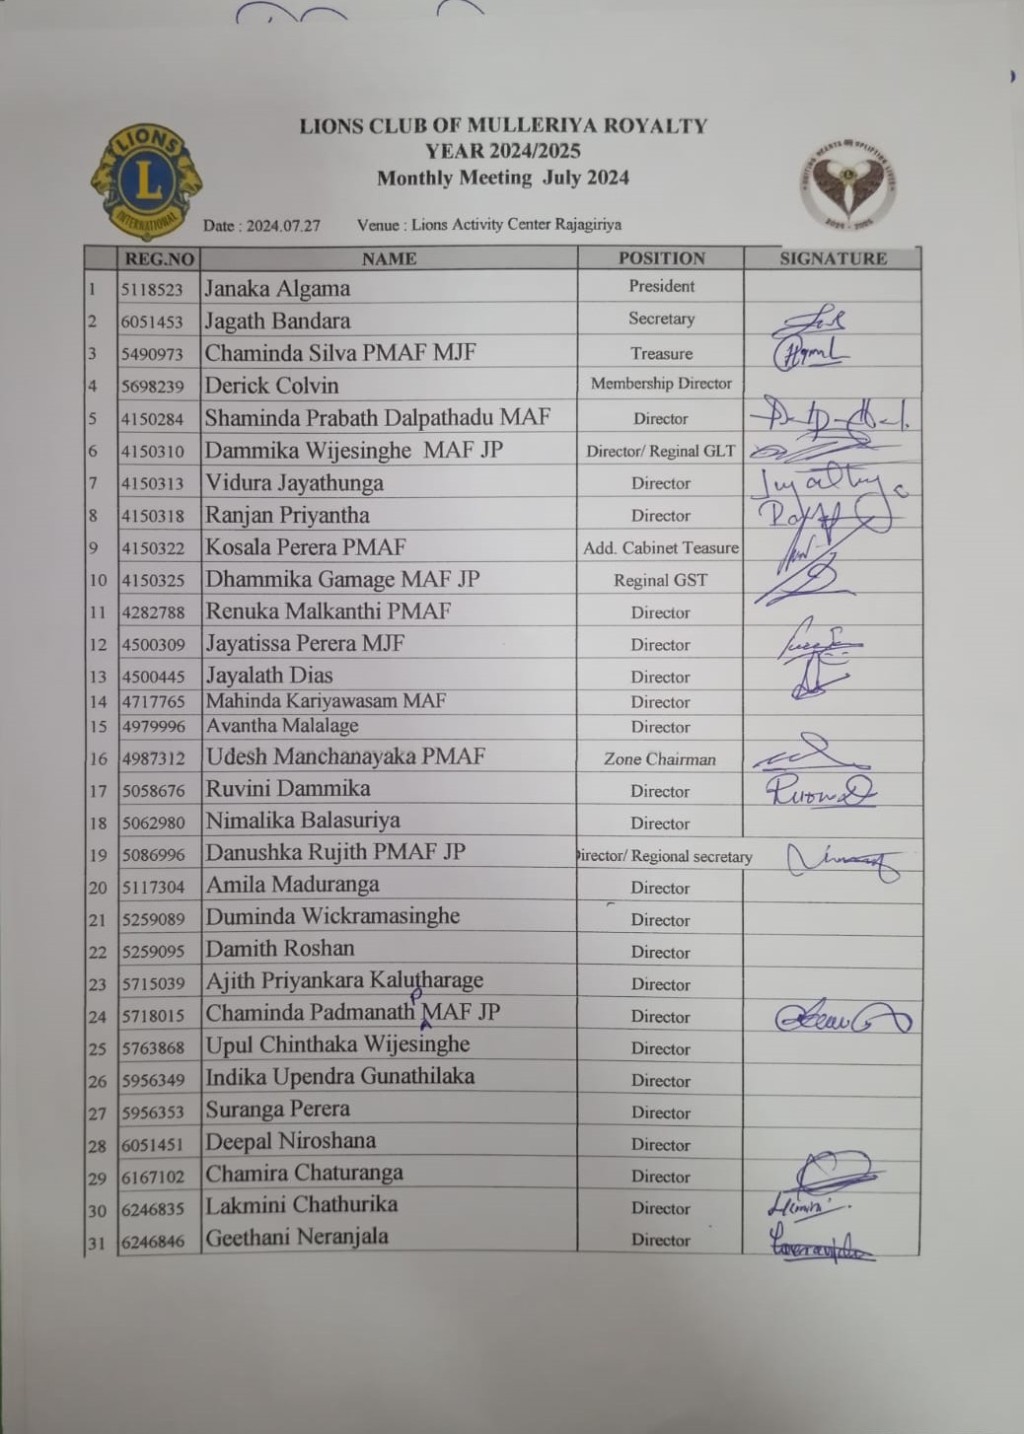 LIONS
L
INTERNATIONAL
LIONS CLUB OF MULLERIYA ROYALTY
YEAR 2024/2025
Monthly Meeting July 2024
Date : 2024.07.27 Venue : Lions Activity Center Rajagiriya
REG.NO NAME POSITION SIGNATURE
1 5118523 Janaka Algama President
2 6051453 Jagath Bandara Secretary
3 5490973 Chaminda Silva PMAF MJF Treasure
4 5698239 Derick Colvin Membership Director
5 4150284 Shaminda Prabath Dalpathadu MAF Director
6 4150310 Dammika Wijesinghe MAF JP Director/ Reginal GLT
7 4150313 Vidura Jayathunga Director
8 4150318 Ranjan Priyantha Director
9 4150322 Kosala Perera PMAF Add. Cabinet Teasure
10 4150325 Dhammika Gamage MAF JP Reginal GST
11 4282788 Renuka Malkanthi PMAF Director
12 4500309 Jayatissa Perera MJF Director
13 4500445 Jayalath Dias Director
14 4717765 Mahinda Kariyawasam MAF Director
15 4979996 Avantha Malalage Director
16 4987312 Udesh Manchanayaka PMAF Zone Chairman
17 5058676 Ruvini Dammika Director
18 5062980 Nimalika Balasuriya Director
19 5086996 Danushka Rujith PMAF JP Director/ Regional secretary
20 5117304 Amila Maduranga Director
21 5259089 Duminda Wickramasinghe Director
22 5259095 Damith Roshan Director
23 5715039 Ajith Priyankara Kalutharage Director
24 5718015 Chaminda Padmanath PMAF JP Director
25 5763868 Upul Chinthaka Wijesinghe Director
26 5956349 Indika Upendra Gunathilaka Director
27 5956353 Suranga Perera Director
28 6051451 Deepal Niroshana Director
29 6167102 Chamira Chaturanga Director
30 6246835 Lakmini Chathurika Director
31 6246846 Geethani Neranjala Director